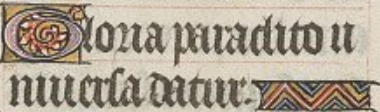 Gloria paraclito u
niuersa datur.